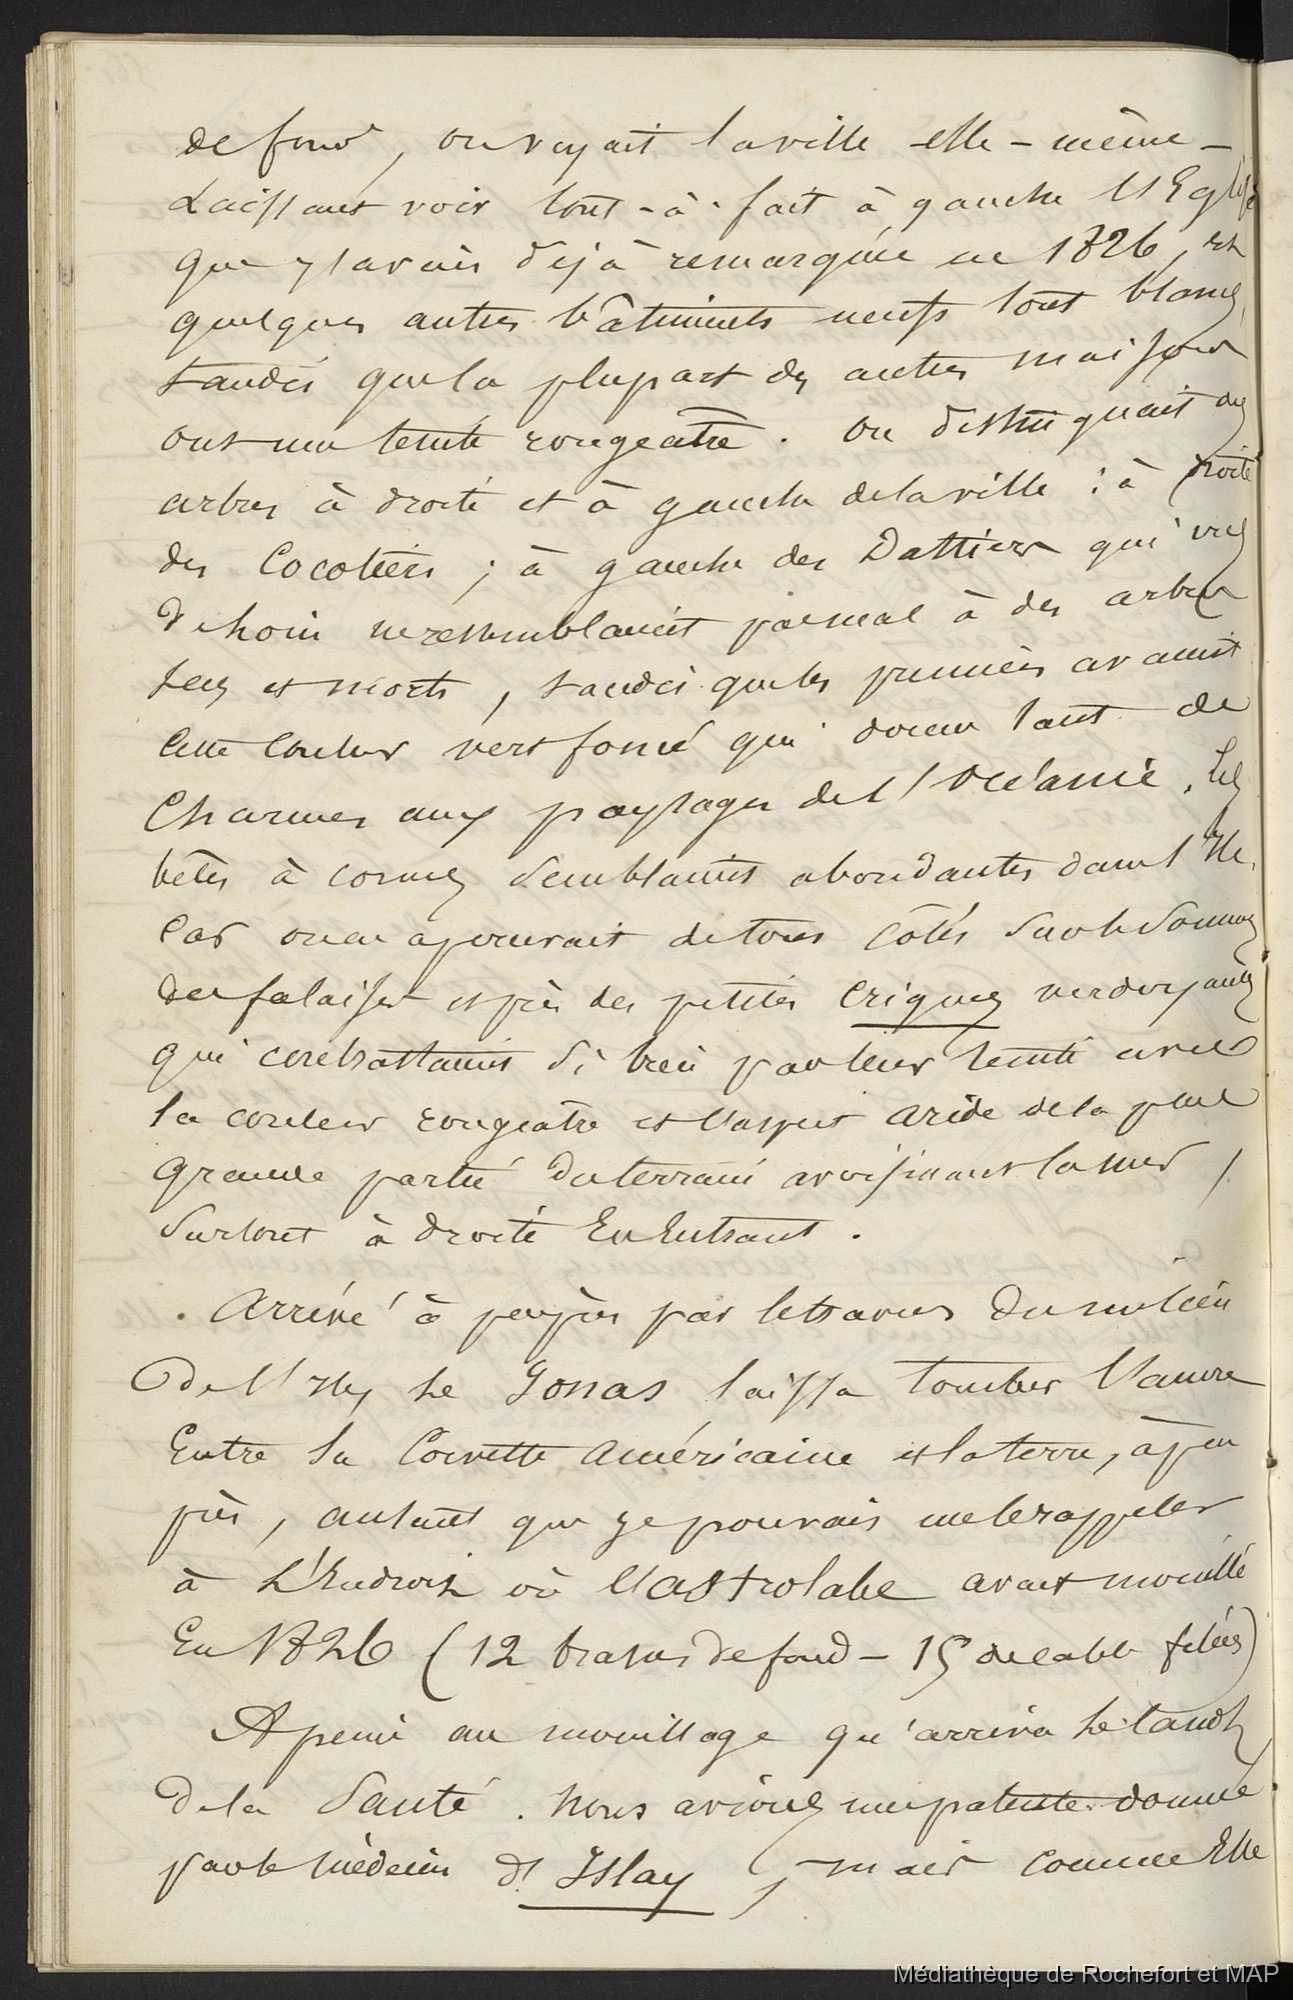 de fond, on voyait la ville elle-même -
Laissant voir tout-à-fait à gauche l'Eglise
que j'avais déjà remarquée en 1826, et
quelques autres bâtiments neufs tout blancs,
tandis que la plupart des autres maisons
ont une teinte rougeatre. On distinguait des
arbres à droite et à gauche de la ville : à droite
des Cocotiers ; à gauche des Dattiers qui vus
de loin ne ressemblaient pas mal à des arbres
secs et morts, tandis que les premiers avaient
cette couleur vert foncé qui donne tant de
Charmes aux paysages de l'Océanie. Les
bêtes à cornes semblaient abondantes dans l'Ile,
car on en apercevait de tous côtés sur les sommets
des falaises et près des petites criques verdoyantes
qui contrastaient si bien par leur teinte avec
la couleur rougeatre et l'aspect aride de la plus
grande partie du terrain avoisinant la mer,
surtout à droite en entrant.
Arrivé à peu près par le travers du milieu
de l'Ile, le Jonas laissa tomber l'ancre
Entre la Corvette américaine et la terre, à peu
près, autant que je pouvais me le rappeler
à l'Endroit où l'astrolabe avait mouillé
En 1826 (12 brasses de fond - 15 de cable filées)
A peine au mouillage qu'arriva le canot
de la Santé. Nous avions une patente donnée
par le médecin d'Islay, mais comme Elle
Médiathèque de Rochefort et MAP